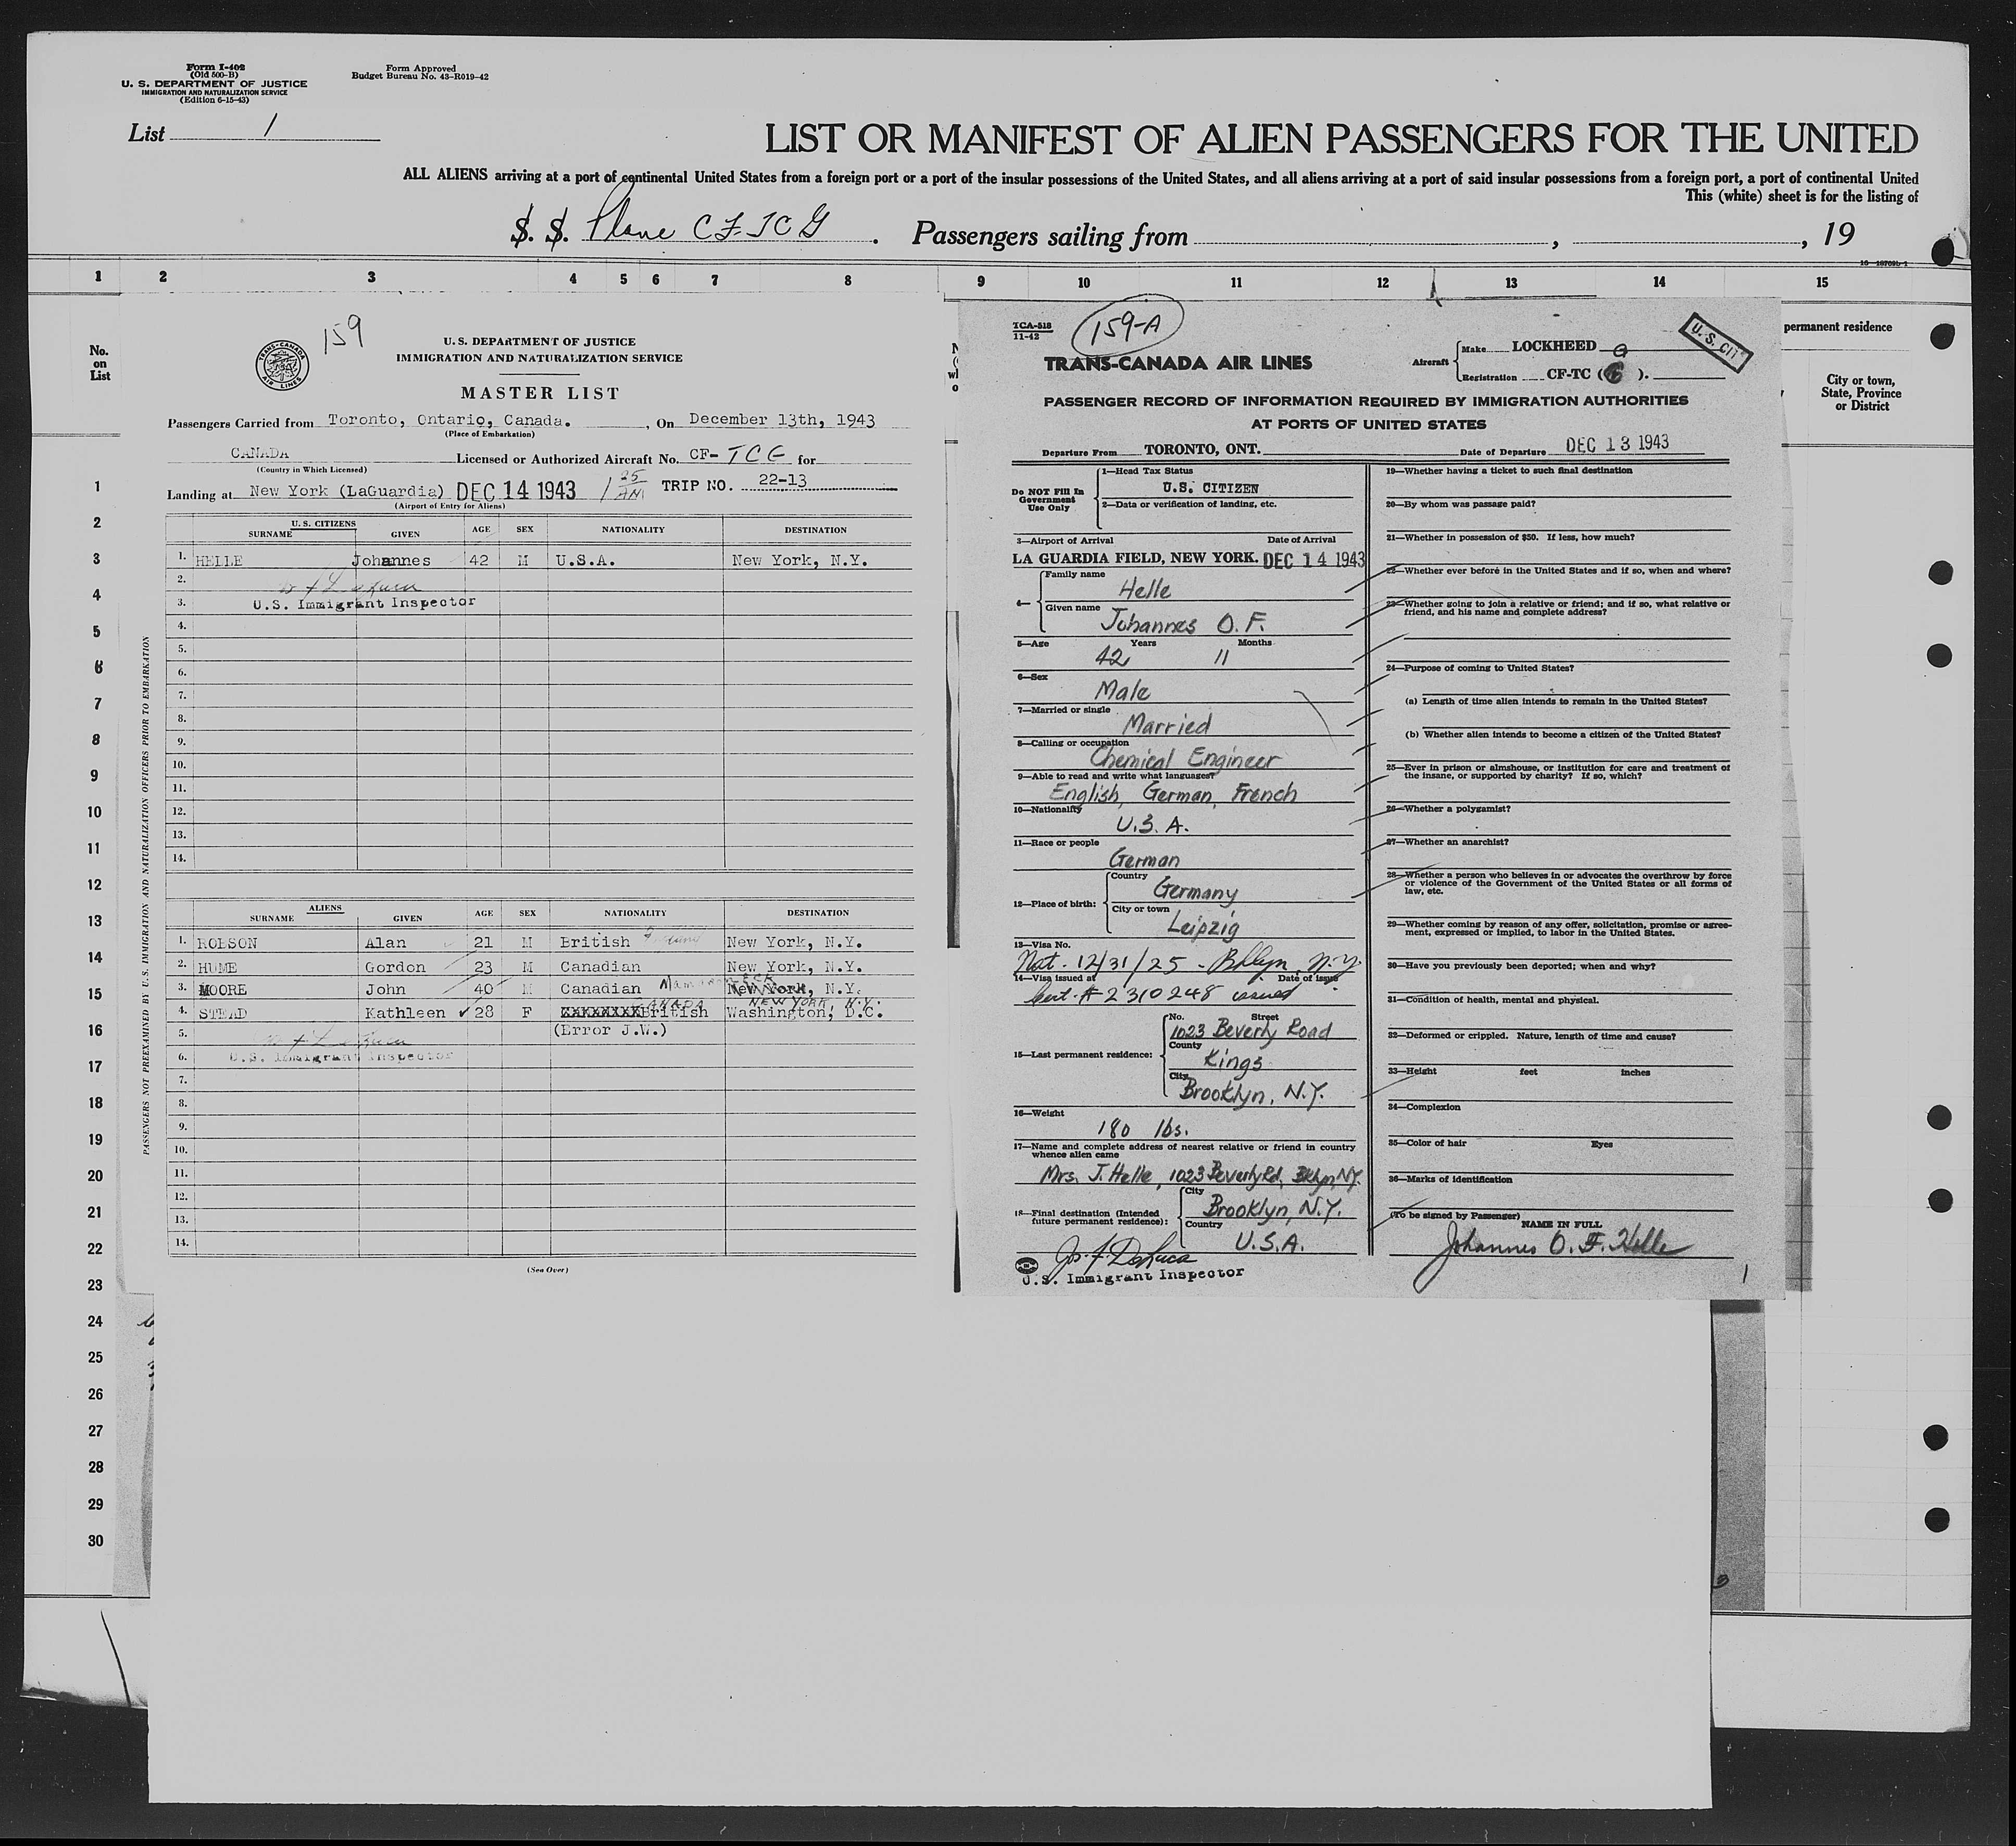 Form I-402
(Old 500-B)
U. S. DEPARTMENT OF JUSTICE
IMMIGRATION AND NATURALIZATION SERVICE
(Edition 6-15-43)
Form Approved
Budget Bureau No. 43-R019-42
List 1
LIST OR MANIFEST OF ALIEN PASSENGERS FOR THE UNITED
ALL ALIENS arriving at a port of continental United States from a foreign port or a port of the insular possessions of the United States, and all aliens arriving at a port of said insular possessions from a foreign port, a port of continental United
This (white) sheet is for the listing of
S. S. Plane CF-TCG. Passengers sailing from , , 19
1 2 3 4 5 6 7 8 9 10 11 12 13 14 15
No.
on
List
1
2
3
4
5
6
7
8
9
10
11
12
13
14
15
16
17
18
19
20
21
22
23
24
25
26
27
28
29
30
TRANS-CANADA AIR LINES
159
U. S. DEPARTMENT OF JUSTICE
IMMIGRATION AND NATURALIZATION SERVICE
MASTER LIST
Passengers Carried from Toronto, Ontario, Canada. , On December 13th, 1943
(Place of Embarkation)
CANADA Licensed or Authorized Aircraft No. CF-TCG for
(Country in Which Licensed)
Landing at New York (LaGuardia) DEC 14 1943 1 25 AM TRIP NO. 22-13
(Airport of Entry for Aliens)
U. S. CITIZENS
SURNAME GIVEN AGE SEX NATIONALITY DESTINATION
1. HELLE Johannes 42 M U.S.A. New York, N.Y.
2.
3. U.S. Immigrant Inspector
4.
5.
6.
7.
8.
9.
10.
11.
12.
13.
14.
ALIENS
SURNAME GIVEN AGE SEX NATIONALITY DESTINATION
1. ROBSON Alan 21 M British New York, N.Y.
2. HUME Gordon 23 M Canadian New York, N.Y.
3. MOORE John 40 M Canadian New York, N.Y.
CANADA NEW YORK, N.Y.
4. STEAD Kathleen 28 F XXXXXXXXBritish Washington, D.C.
5. (Error J.W.)
6. U.S. Immigrant Inspector
7.
8.
9.
10.
11.
12.
13.
14.
(See Over)
PASSENGERS NOT PREEXAMINED BY U.S. IMMIGRATION AND NATURALIZATION OFFICERS PRIOR TO EMBARKATION
TCA-518
11-42
159-A
U. S. CIT
TRANS-CANADA AIR LINES
Aircraft
Make LOCKHEED
G
Registration CF-TC ( ).
PASSENGER RECORD OF INFORMATION REQUIRED BY IMMIGRATION AUTHORITIES
AT PORTS OF UNITED STATES
Departure From TORONTO, ONT. Date of Departure DEC 13 1943
Do NOT Fill In
Government
Use Only
1—Head Tax Status
U.S. CITIZEN
2—Data or verification of landing, etc.
3—Airport of Arrival Date of Arrival
LA GUARDIA FIELD, NEW YORK. DEC 14 1943
4—
Family name
Helle
Given name
Johannes O. F.
5—Age Years Months
42 11
6—Sex
Male
7—Married or single
Married
8—Calling or occupation
Chemical Engineer
9—Able to read and write what languages?
English, German, French
10—Nationality
U.S.A.
11—Race or people
German
12—Place of birth:
Country
Germany
City or town
Leipzig
13—Visa No.
Nat. 12/31/25 - Bklyn, N.Y.
14—Visa issued at Date of issue
Cert. # 2310248 issued
15—Last permanent residence:
No. Street
1023 Beverly Road
County
Kings
City
Brooklyn, N.Y.
16—Weight
180 lbs.
17—Name and complete address of nearest relative or friend in country
whence alien came
Mrs. J. Helle, 1023 Beverly Rd, Bklyn, N.Y.
18—Final destination (Intended
future permanent residence):
City
Brooklyn, N.Y.
Country
U.S.A.
Jos. F. DeLuca
U.S. Immigrant Inspector
19—Whether having a ticket to such final destination
20—By whom was passage paid?
21—Whether in possession of $50. If less, how much?
22—Whether ever before in the United States and if so, when and where?
23—Whether going to join a relative or friend; and if so, what relative or
friend, and his name and complete address?
24—Purpose of coming to United States?
(a) Length of time alien intends to remain in the United States?
(b) Whether alien intends to become a citizen of the United States?
25—Ever in prison or almshouse, or institution for care and treatment of
the insane, or supported by charity? If so, which?
26—Whether a polygamist?
27—Whether an anarchist?
28—Whether a person who believes in or advocates the overthrow by force
or violence of the Government of the United States or all forms of
law, etc.
29—Whether coming by reason of any offer, solicitation, promise or agree-
ment, expressed or implied, to labor in the United States.
30—Have you previously been deported; when and why?
31—Condition of health, mental and physical.
32—Deformed or crippled. Nature, length of time and cause?
33—Height feet inches
34—Complexion
35—Color of hair Eyes
36—Marks of identification
(To be signed by Passenger)
NAME IN FULL
Johannes O. F. Helle
1
permanent residence
City or town,
State, Province
or District